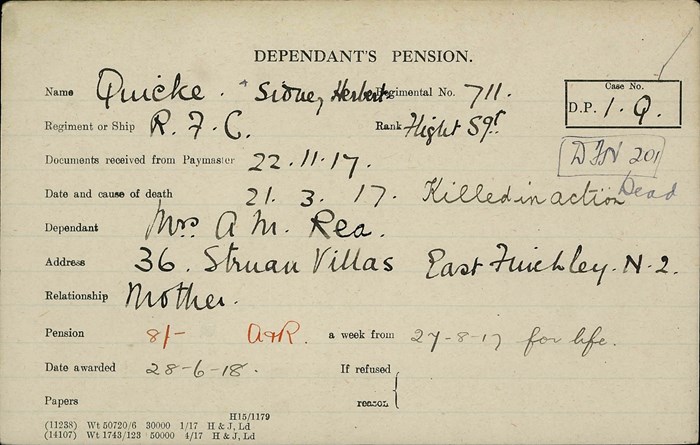 DEPENDANT'S PENSION.
Name Quicke. Sidney Herbert Regimental No. 711.
Case No.
D.P. 1. Q.
Regiment or Ship R. F. C. Rank Flight Sgt
Documents received from Paymaster 22.11.17.
Date and cause of death 21. 3. 17. Killed in action Dead
Dependant Mrs A M. Rea.
Address 36. Struan Villas East Finchley. N. 2.
Relationship Mother.
Pension 8/- a week from 27-8-17 for life.
Date awarded 28-6-18. If refused
Papers reason
H15/1179
(11238) Wt 50720/6 30000 1/17 H & J, Ld
(14107) Wt 1743/123 50000 4/17 H & J, Ld